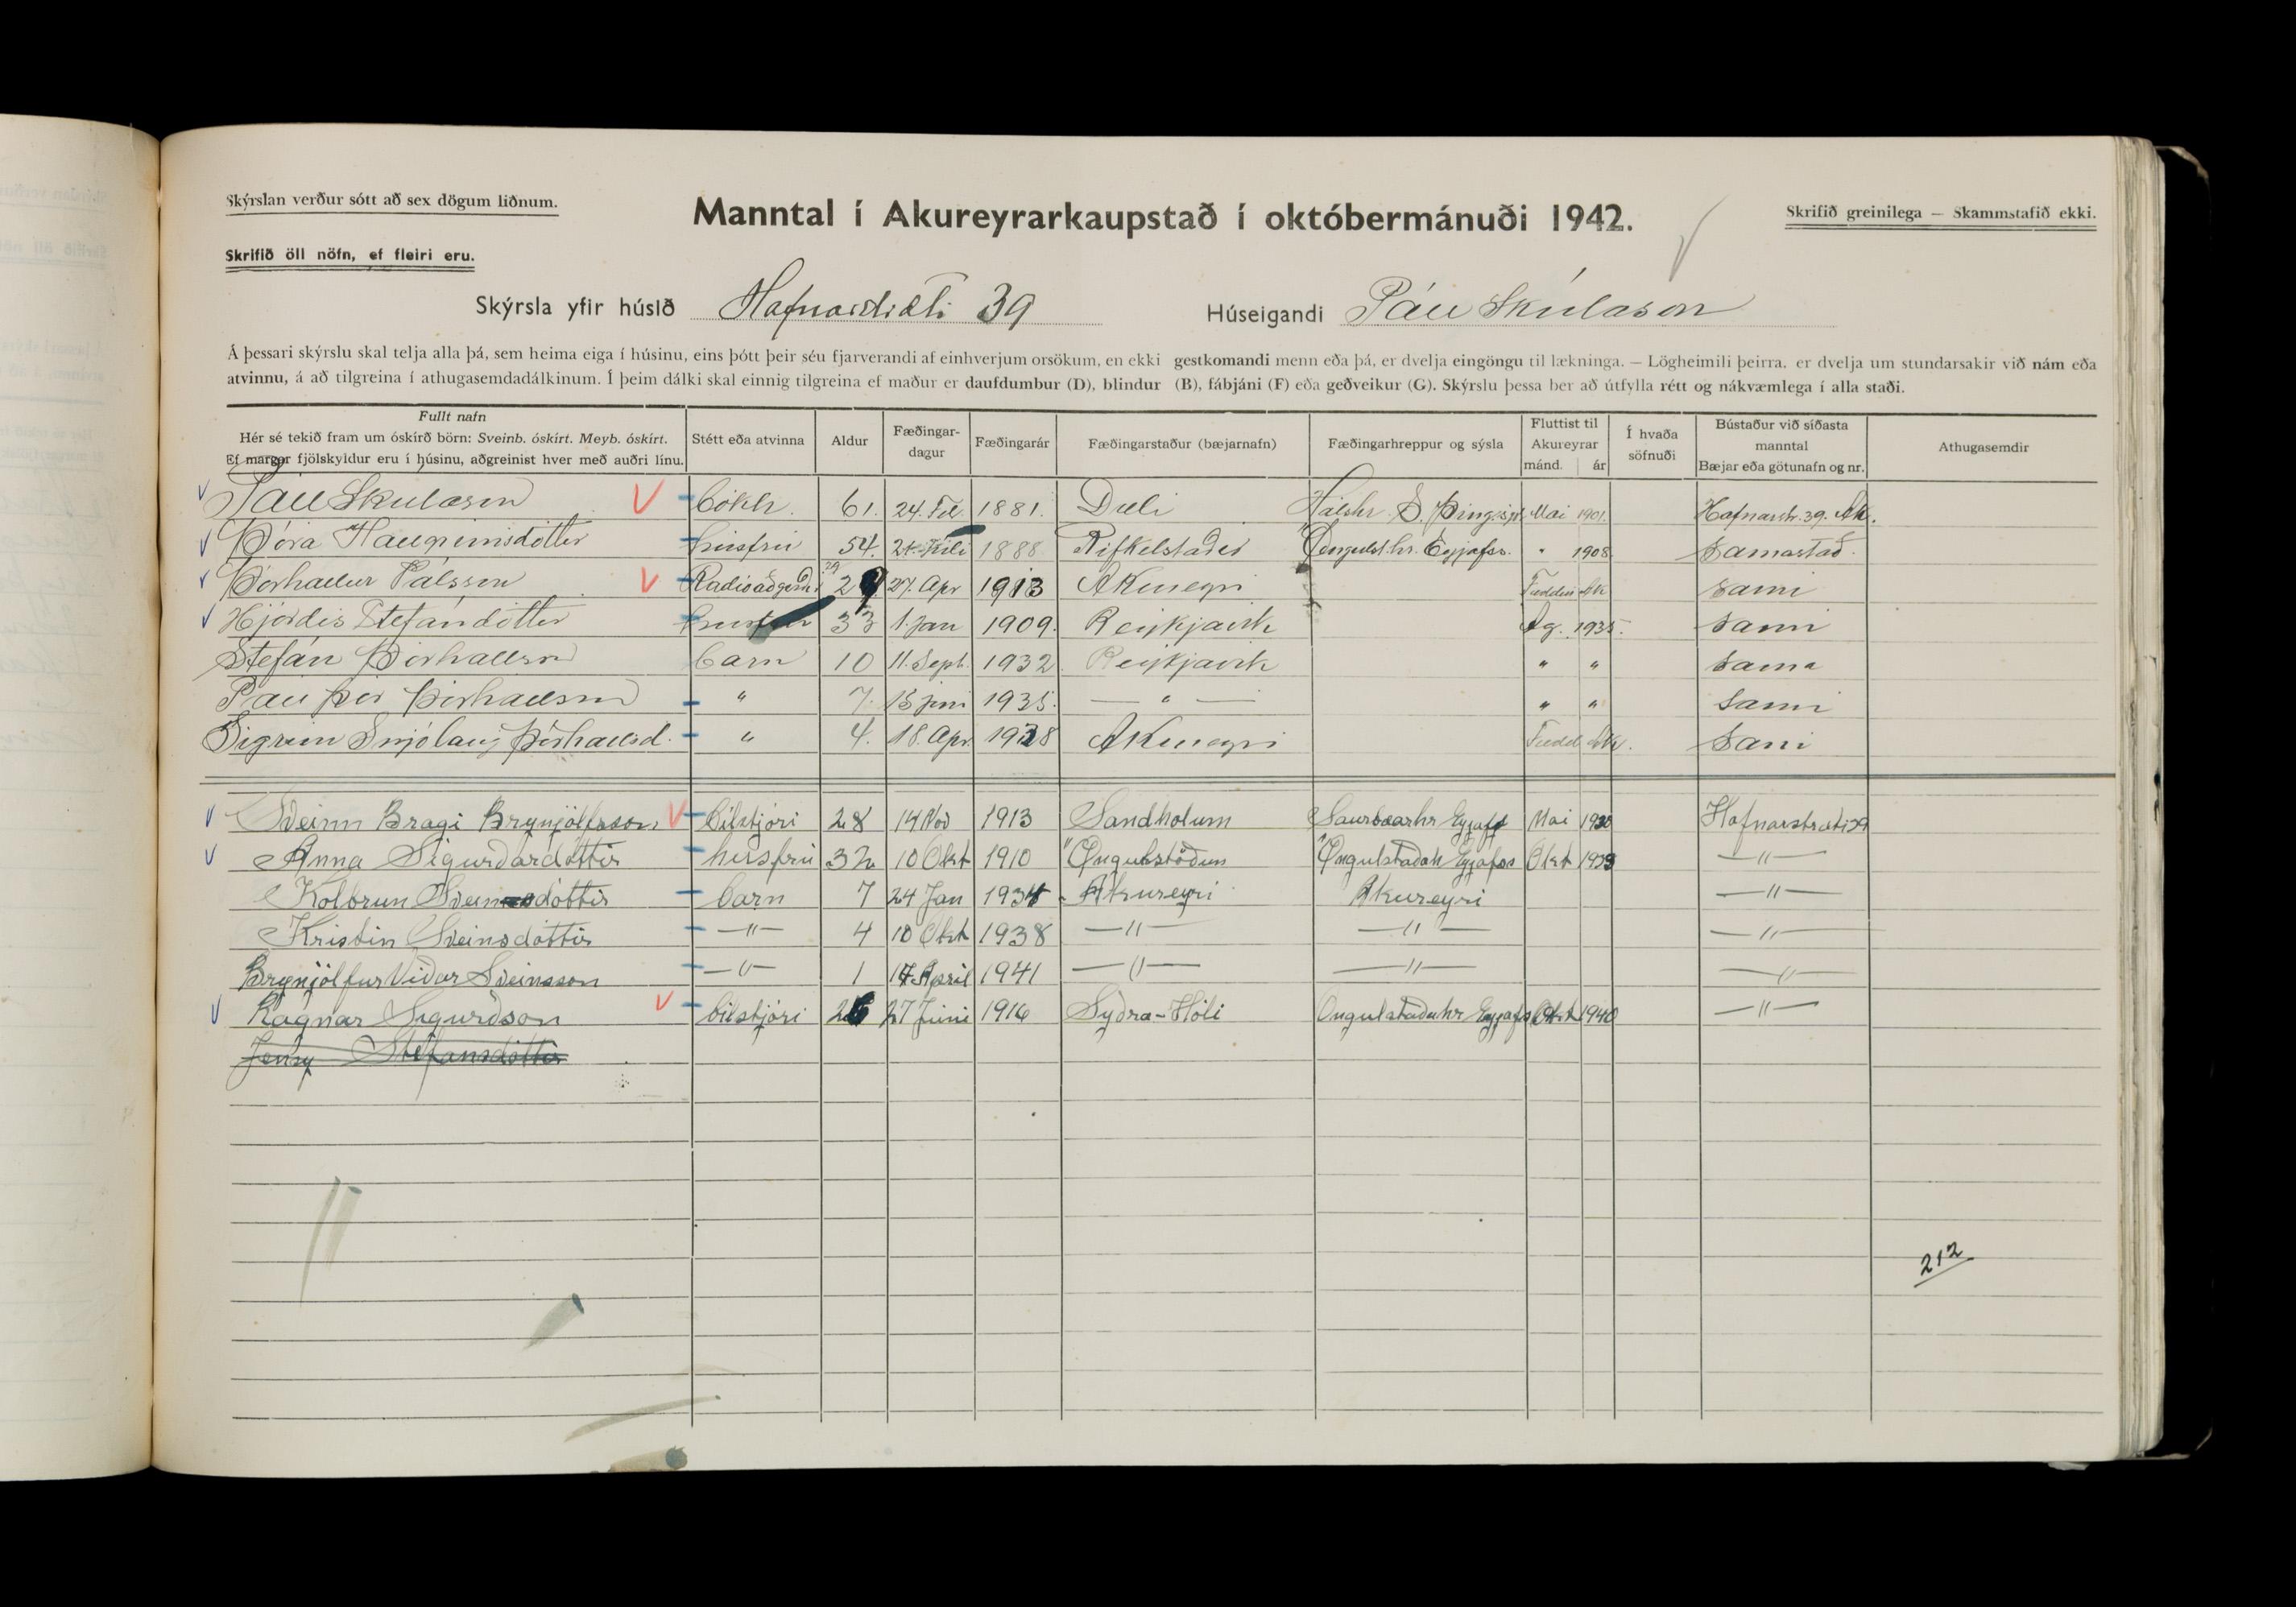 Skýrslan verður sótt að sex dögum liðnum.
Manntal í Akureyrarkaupstað í októbermánuði 1942.
Skrifið greinilega — Skammstafið ekki.
Skrifið öll nöfn, ef fleiri eru.
Skýrsla yfir húsið Hafnarstræti 39 Húseigandi Páll Skúlason
Á þessari skýrslu skal telja alla þá, sem heima eiga í húsinu, eins þótt þeir séu fjarverandi af einhverjum orsökum, en ekki gestkomandi menn eða þá, er dvelja eingöngu til lækninga. — Lögheimili þeirra, er dvelja um stundarsakir við nám eða
atvinnu, á að tilgreina í athugasemdadálkinum. Í þeim dálki skal einnig tilgreina ef maður er daufdumbur (D), blindur (B), fábjáni (F) eða geðveikur (G). Skýrslu þessa ber að útfylla rétt og nákvæmlega í alla staði.
Fullt nafn
Hér sé tekið fram um óskírð börn: Sveinb. óskírt. Meyb. óskírt.
Ef margar fjölskyldur eru í húsinu, aðgreinist hver með auðri línu.
Stétt eða atvinna
Aldur
Fæðingar-
dagur
Fæðingarár
Fæðingarstaður (bæjarnafn)
Fæðingarhreppur og sýsla
Fluttist til
Akureyrar
mánd. ár
Í hvaða
söfnuði
Bústaður við síðasta
manntal
Bæjar eða götunafn og nr.
Athugasemdir
Páll Skúlason bókh. 61. 24. 1881. Hálshr. S. Þing.s. Mai 1901. Hafnarstr. 39. Ak.
Þóra Hallgrímsdóttir húsfrú 54. 1888 Rifkelstaðir Öngulst.hr. Eyjafss. " 1908 Samastað.
Þórhallur Pálsson 29 27. Apr 1913 Akureyri Fæddur Ak Sami
Hjördís Stefánsdóttir húsfrú 33 1. Jan 1909. Reykjavík Ág. 1935. Sami
Stefán Þórhallsson barn 10 11. Sept. 1932 Reykjavík " " Sama
Páll Þór Þórhallsson " 7. júni 1935. — " — " " Sami
Sigrún Snjólaug Þórhallsd. " 4. 18. Apr. 1938 Akureyri Fædd Ak. Sami
Sveinn Bragi Brynjólfsson. bílstjóri 28 14 Nóv 1913 Sandhólum Saurbæarhr Eyjafs Mai Hafnarstræti 39
Anna Sigurðardóttir húsfrú 32 10 Okt 1910 Öngulstöðum Öngulstaðah Eyjafss Okt —"—
Kolbrun Sveinsdóttir barn 7 24 Jan Akureyri Akureyri —"—
Kristín Sveinsdóttir —"— 4 10 Okt 1938 —"— —"— —"—
Brynjólfur Viðar Sveinsson —"— 1 17. April 1941 —"— —"— —"—
Ragnar Sigurðson bílstjóri 26 27 Júni 1916 Syðra-Hóli Öngulstaðahr Eyjafs Okt 1940 —"—
Jensy Stefánsdóttir
212